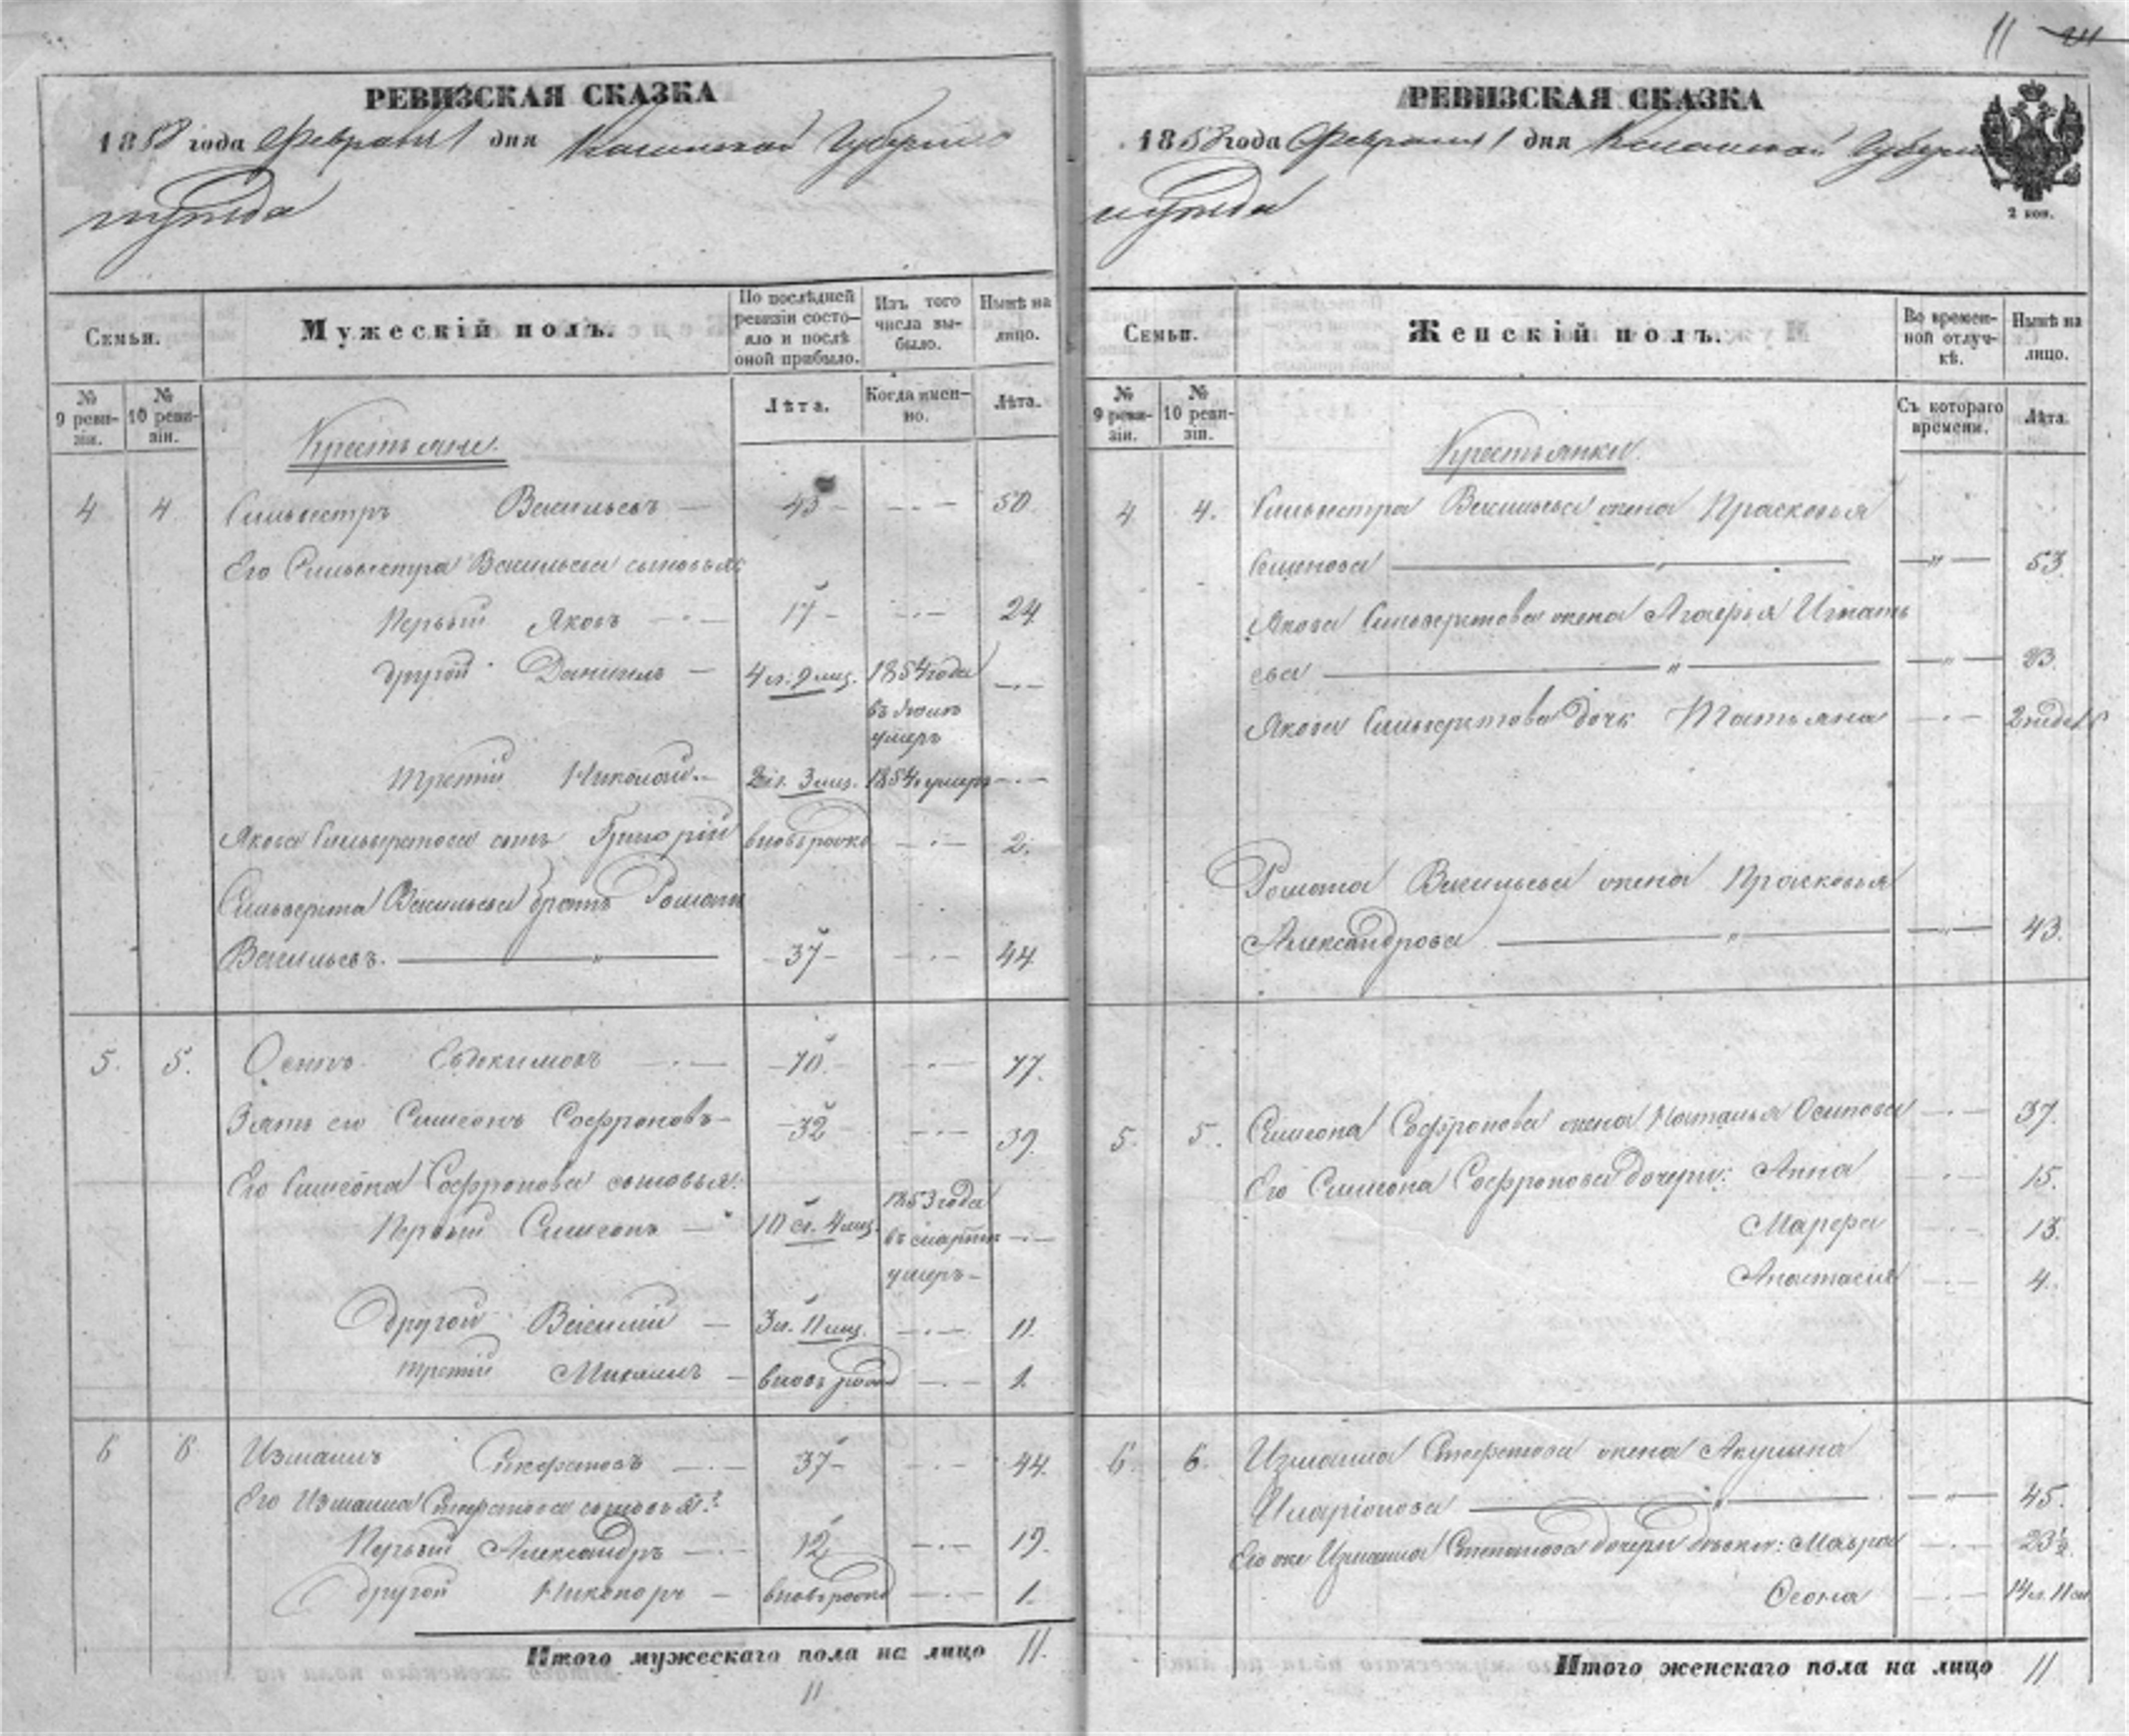 11
РЕВИЗСКАЯ СКАЗКА
1858 года Февраля 1 дня Казанской Губерніи
уѣзда
Семьи.
Мужескій полъ.
По послѣдней ревизіи состояло и послѣ оной прибыло.
Изъ того числа выбыло.
Нынѣ на лицо.
№ 9 ревизіи.
№ 10 ревизіи.
Лѣта.
Когда именно.
Лѣта.
Крестьяне.
4 4 Сильвестръ Васильевъ — 43 — 50.
Его Сильвестра Васильева сыновья:
Первый Яковъ — 17 — 24
другой Данилъ — 4 л. 9 мец. 1854 года
умеръ
Третій Николай — 2 л. 3 мец. 1854 умеръ —
Якова Сильверстова сынъ Григорій вновь рожд — 2.
Сильверста Васильева братъ Романъ
Васильевъ. — 37 — 44.
5. 5. Осипъ Евдокимовъ — 70. — 77.
Зять его Симеонъ Софроновъ — 32 — 39.
Его Симеона Софронова сыновья:
Первый Симеонъ — 10 л. 4 мец. 1853 года
въ мартѣ
умеръ —
Другой Василій — 3 л. 11 мец. — 11.
третій Михаилъ — вновь рожд — 1.
6 6 Измаилъ 37 — 44.
Его Измаила сыновья:
Первый Александръ — 12 — 19.
другой Никоноръ — вновь рожд — 1.
Итого мужескаго пола на лицо 11.
11
РЕВИЗСКАЯ СКАЗКА
1858 года Февраля 1 дня Казанской Губерніи
уѣзда
2 коп.
Семьи.
Женскій полъ.
Во временной отлучкѣ.
Нынѣ на лицо.
№ 9 ревизіи.
№ 10 ревизіи.
Съ котораго времени.
Лѣта.
Крестьянки.
4 4. Сильвестра Васильева жена Прасковья
— 53.
Якова Сильверстова жена Агафья Игнать
ева — 23.
Якова Сильверстова дочь Татьяна — 2 недел
Романа Васильева жена Прасковья
Александрова — 43.
5. 5. Симеона Софронова жена Наталья Осипова — 37.
Его Симеона Софронова дочери: Анна — 15.
Марфа — 13.
Анастасія — 4.
6. 6. Измаила жена Акулина
Иларіонова — 45.
Его же Измаила дочери Мавра — 23½.
14 л. 11 м
Итого женскаго пола на лицо 11